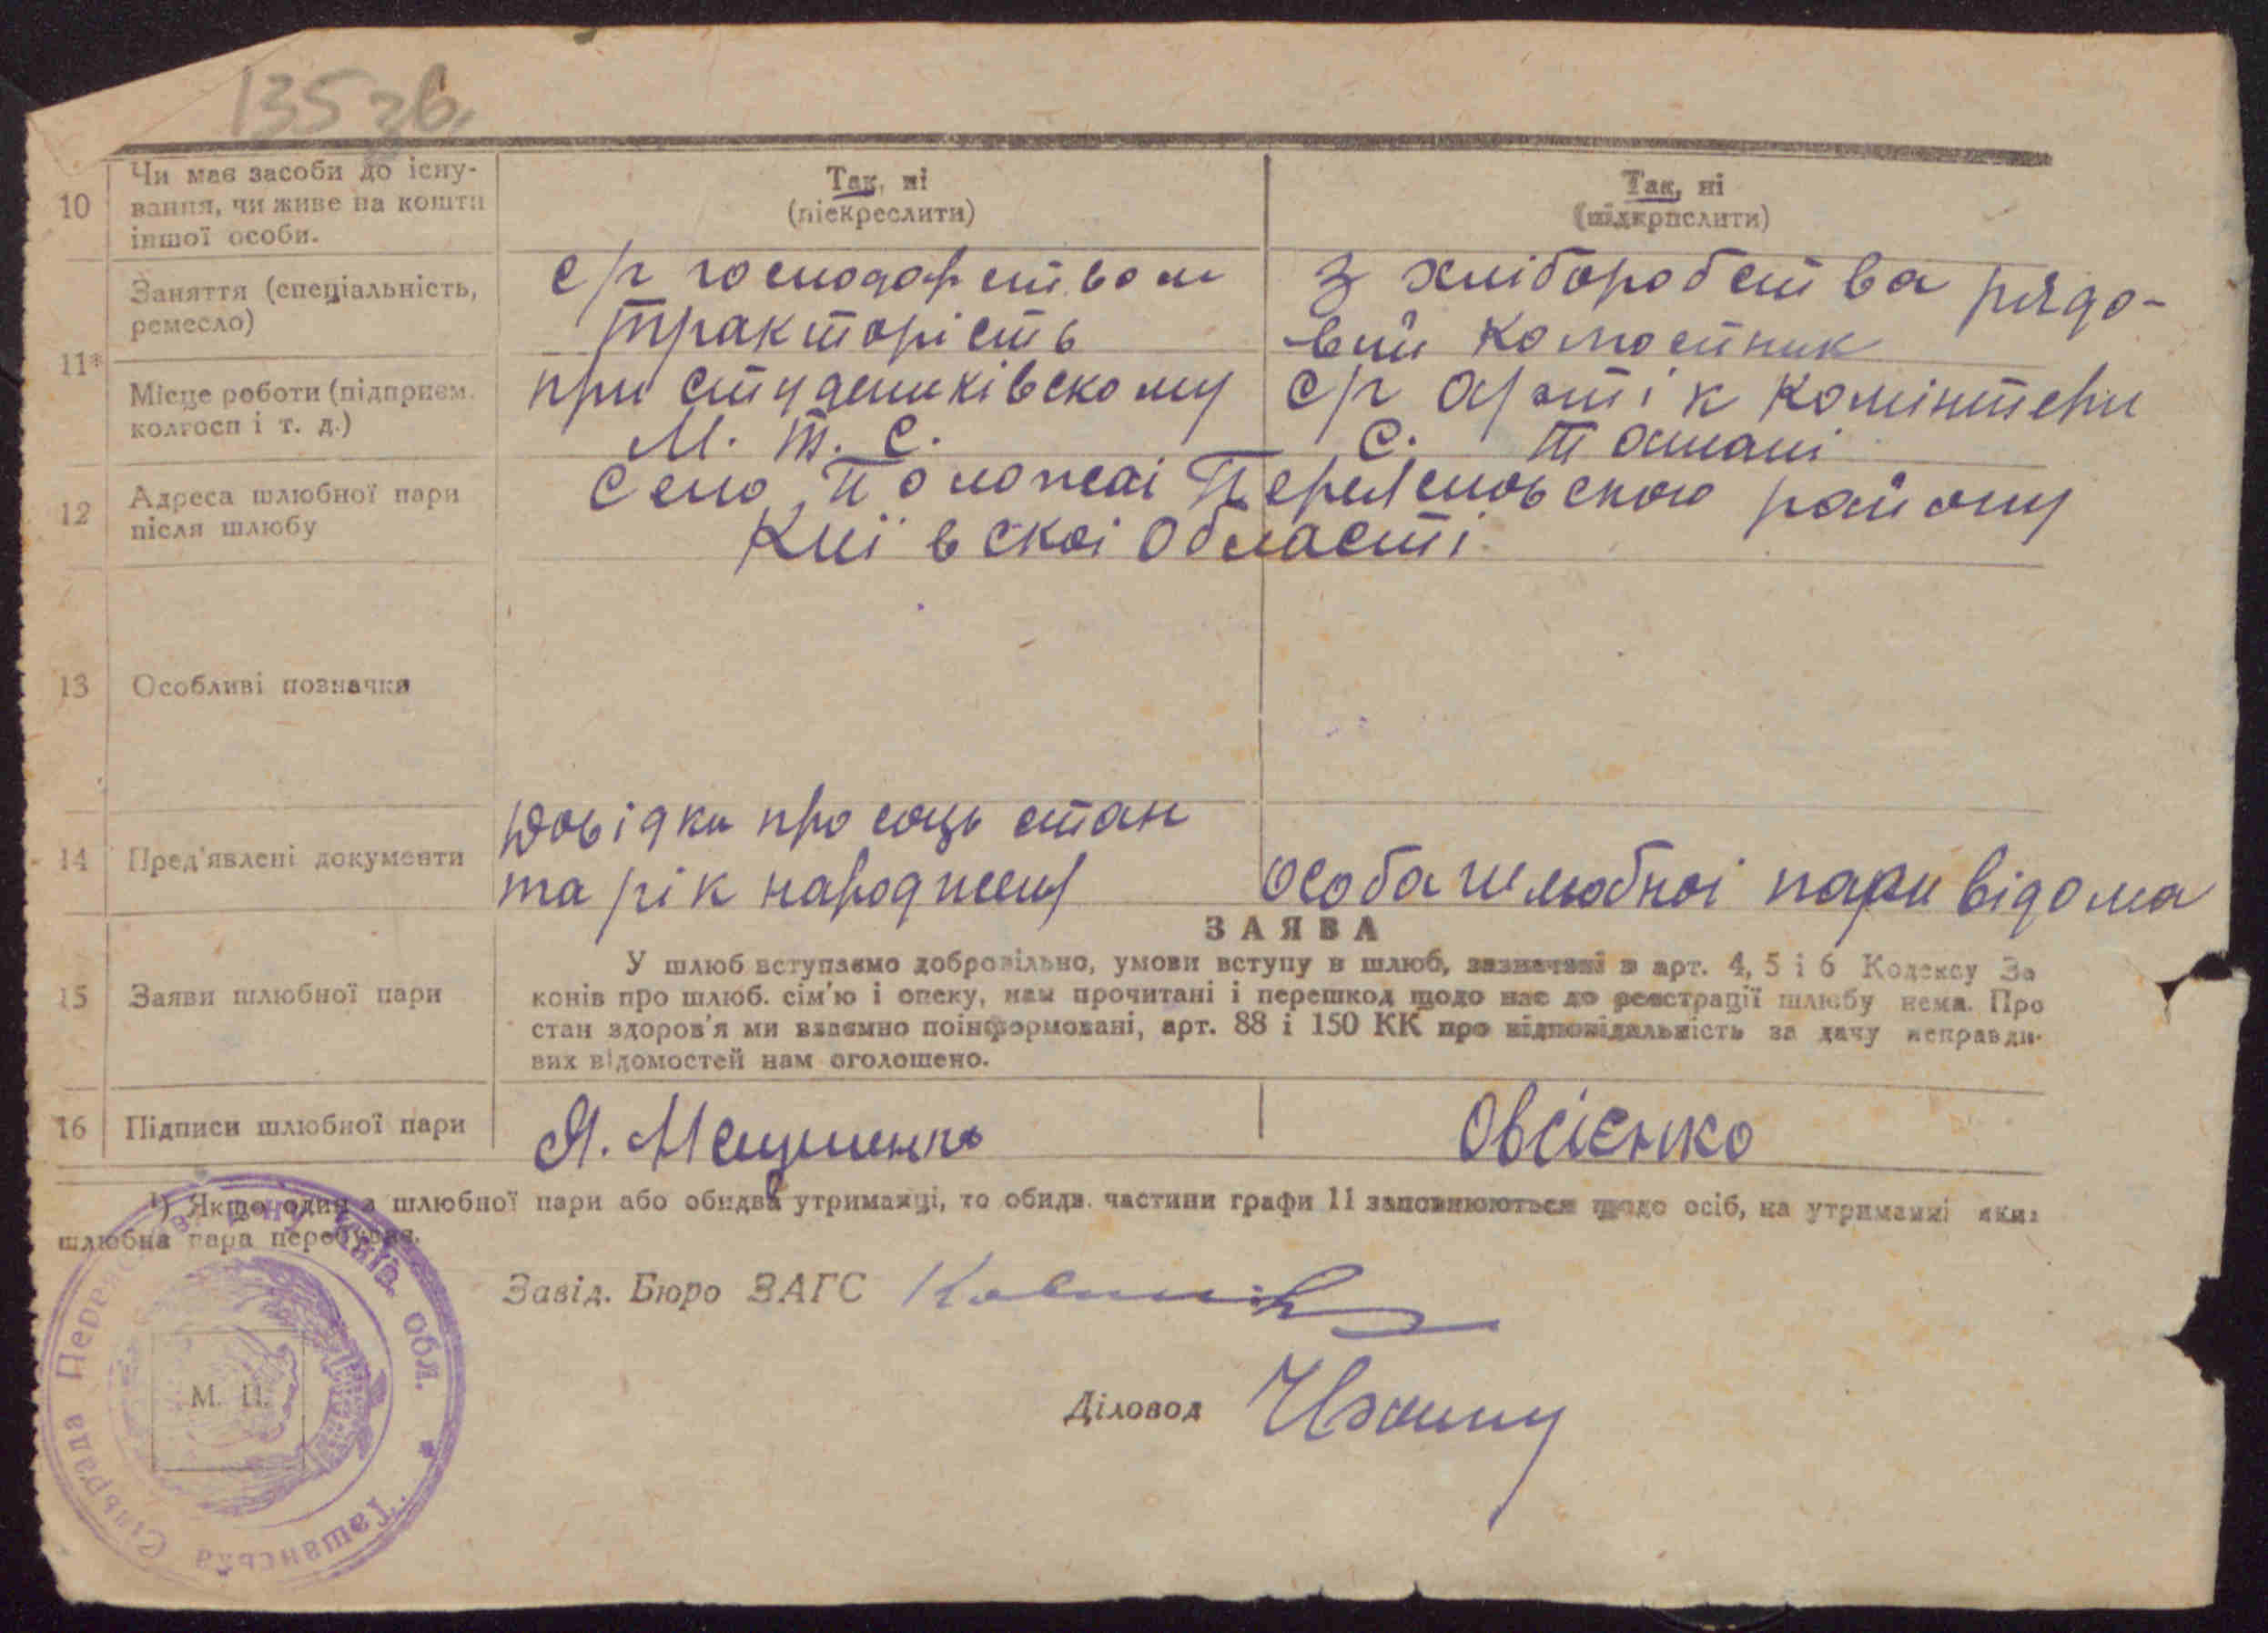 135 зв.
10 Чи має засоби до існу-
вання, чи живе на кошти
іншої особи.
Так, ні
(піекреслити)
Так, ні
(підкрпслити)
11* Заняття (спеціальність,
ремесло)
с/г господарством
тракторість
з хліборобства рядо-
вий
Місце роботи (підприєм.
колгосп і т. д.)
при студениківскому
М. Т. С.
с/г артіл Комінтерн
с. Ташані
12 Адреса шлюбної пари
після шлюбу
Село Положаі Переясловского району
Київскоі Області
13 Особливі позначки
14 Пред'явлені документи
Довідки про соць стан
та рік народженя
особа шлюбноі пари відома
ЗАЯВА
15 Заяви шлюбної пари
У шлюб вступаємо добровільно, умови вступу в шлюб, зазначені в арт. 4, 5 і 6 Кодексу За
конів про шлюб. сім'ю і опеку, нам прочитані і перешкод щодо нас до реєстрації шлюбу нема. Про
стан здоров'я ми взаємно поінформовані, арт. 88 і 150 КК про відповідальність за дачу неправди-
вих відомостей нам оголошено.
16 Підписи шлюбної пари
Я.
Овсієнко
¹) Якщо один з шлюбної пари або обидва утриманці, то обидв. частини графи 11 заповнюються щодо осіб, на утриманні яких
шлюбна пара перебуває.
Завід. Бюро ЗАГС
Діловод
М. П.
Ташанська Сільрада обл.